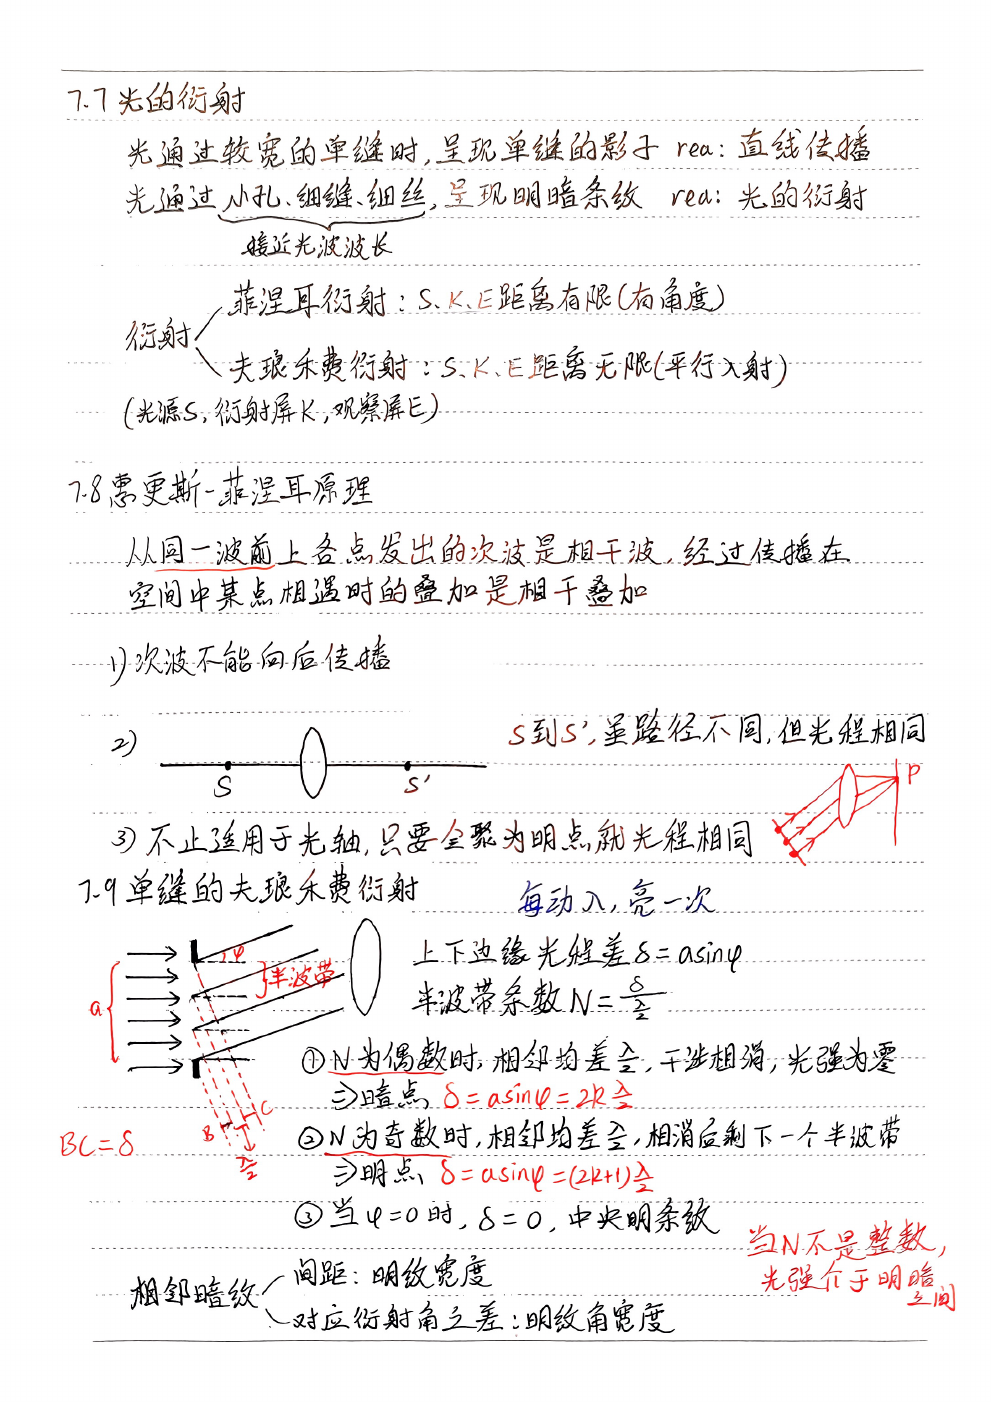 7.7 光的衍射
光通过较宽的单缝时,呈现单缝的影子 rea: 直线传播
光通过小孔、细缝、细丝,呈现明暗条纹 rea: 光的衍射
接近光波波长
衍射
菲涅耳衍射: S、K、E距离有限(有角度)
夫琅禾费衍射: S、K、E距离无限(平行入射)
(光源S, 衍射屏K, 观察屏E)
7.8 惠更斯-菲涅耳原理
从同一波前上各点发出的次波是相干波, 经过传播在
空间中某点相遇时的叠加是相干叠加
1) 次波不能向后传播
2)
S到S′, 虽路径不同, 但光程相同
S
S′
P
3) 不止适用于光轴, 只要会聚为明点就光程相同
7.9 单缝的夫琅禾费衍射
每动λ, 亮一次
φ
半波带
a
上下边缘光程差 δ = asinφ
半波带条数 N = δ/(λ/2)
① N为偶数时, 相邻均差λ/2, 干涉相消, 光强为零
⇒暗点 δ = asinφ = 2kλ/2
B
C
λ/2
BC = δ
② N为奇数时, 相邻均差λ/2, 相消后剩下一个半波带
⇒明点 δ = asinφ = (2k+1)λ/2
③ 当φ=0时, δ=0, 中央明条纹
当N不是整数,
光强介于明暗
之间
相邻暗纹
间距: 明纹宽度
对应衍射角之差: 明纹角宽度